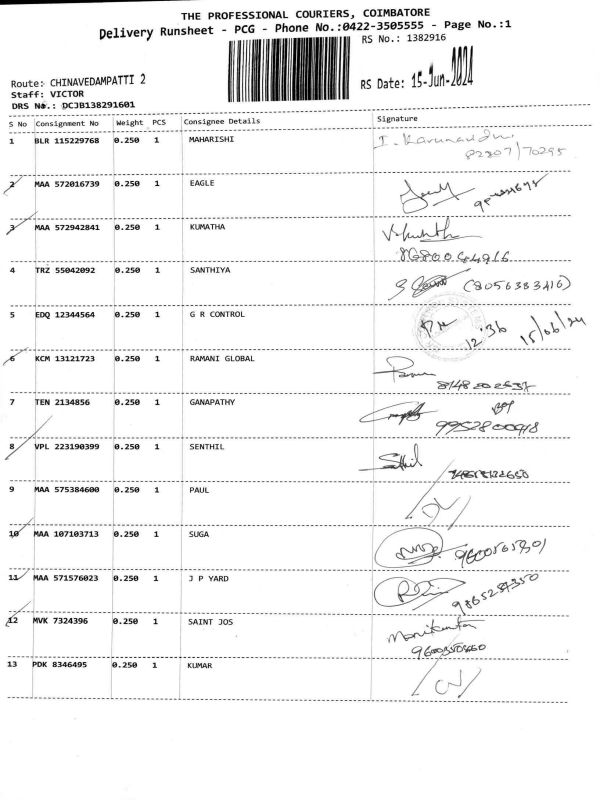 THE PROFESSIONAL COURIERS, COIMBATORE
Delivery Runsheet - PCG - Phone No.:0422-3505555 - Page No.:1
RS No.: 1382916
Route: CHINAVEDAMPATTI 2
Staff: VICTOR
RS Date: 15-Jun-2024
DRS No.: DCJB138291601
S No Consignment No Weight PCS Consignee Details Signature
1 BLR 115229768 0.250 1 MAHARISHI
2 MAA 572016739 0.250 1 EAGLE
3 MAA 572942841 0.250 1 KUMATHA
4 TRZ 55042092 0.250 1 SANTHIYA
(8056383416)
5 EDQ 12344564 0.250 1 G R CONTROL
12:36 15/06/24
6 KCM 13121723 0.250 1 RAMANI GLOBAL
8148202537
7 TEN 2134856 0.250 1 GANAPATHY
9952800918
8 VPL 223190399 0.250 1 SENTHIL
Senthil
9 MAA 575384600 0.250 1 PAUL
10 MAA 107103713 0.250 1 SUGA
11 MAA 571576023 0.250 1 J P YARD
12 MVK 7324396 0.250 1 SAINT JOS
Manikanta
13 PDK 8346495 0.250 1 KUMAR